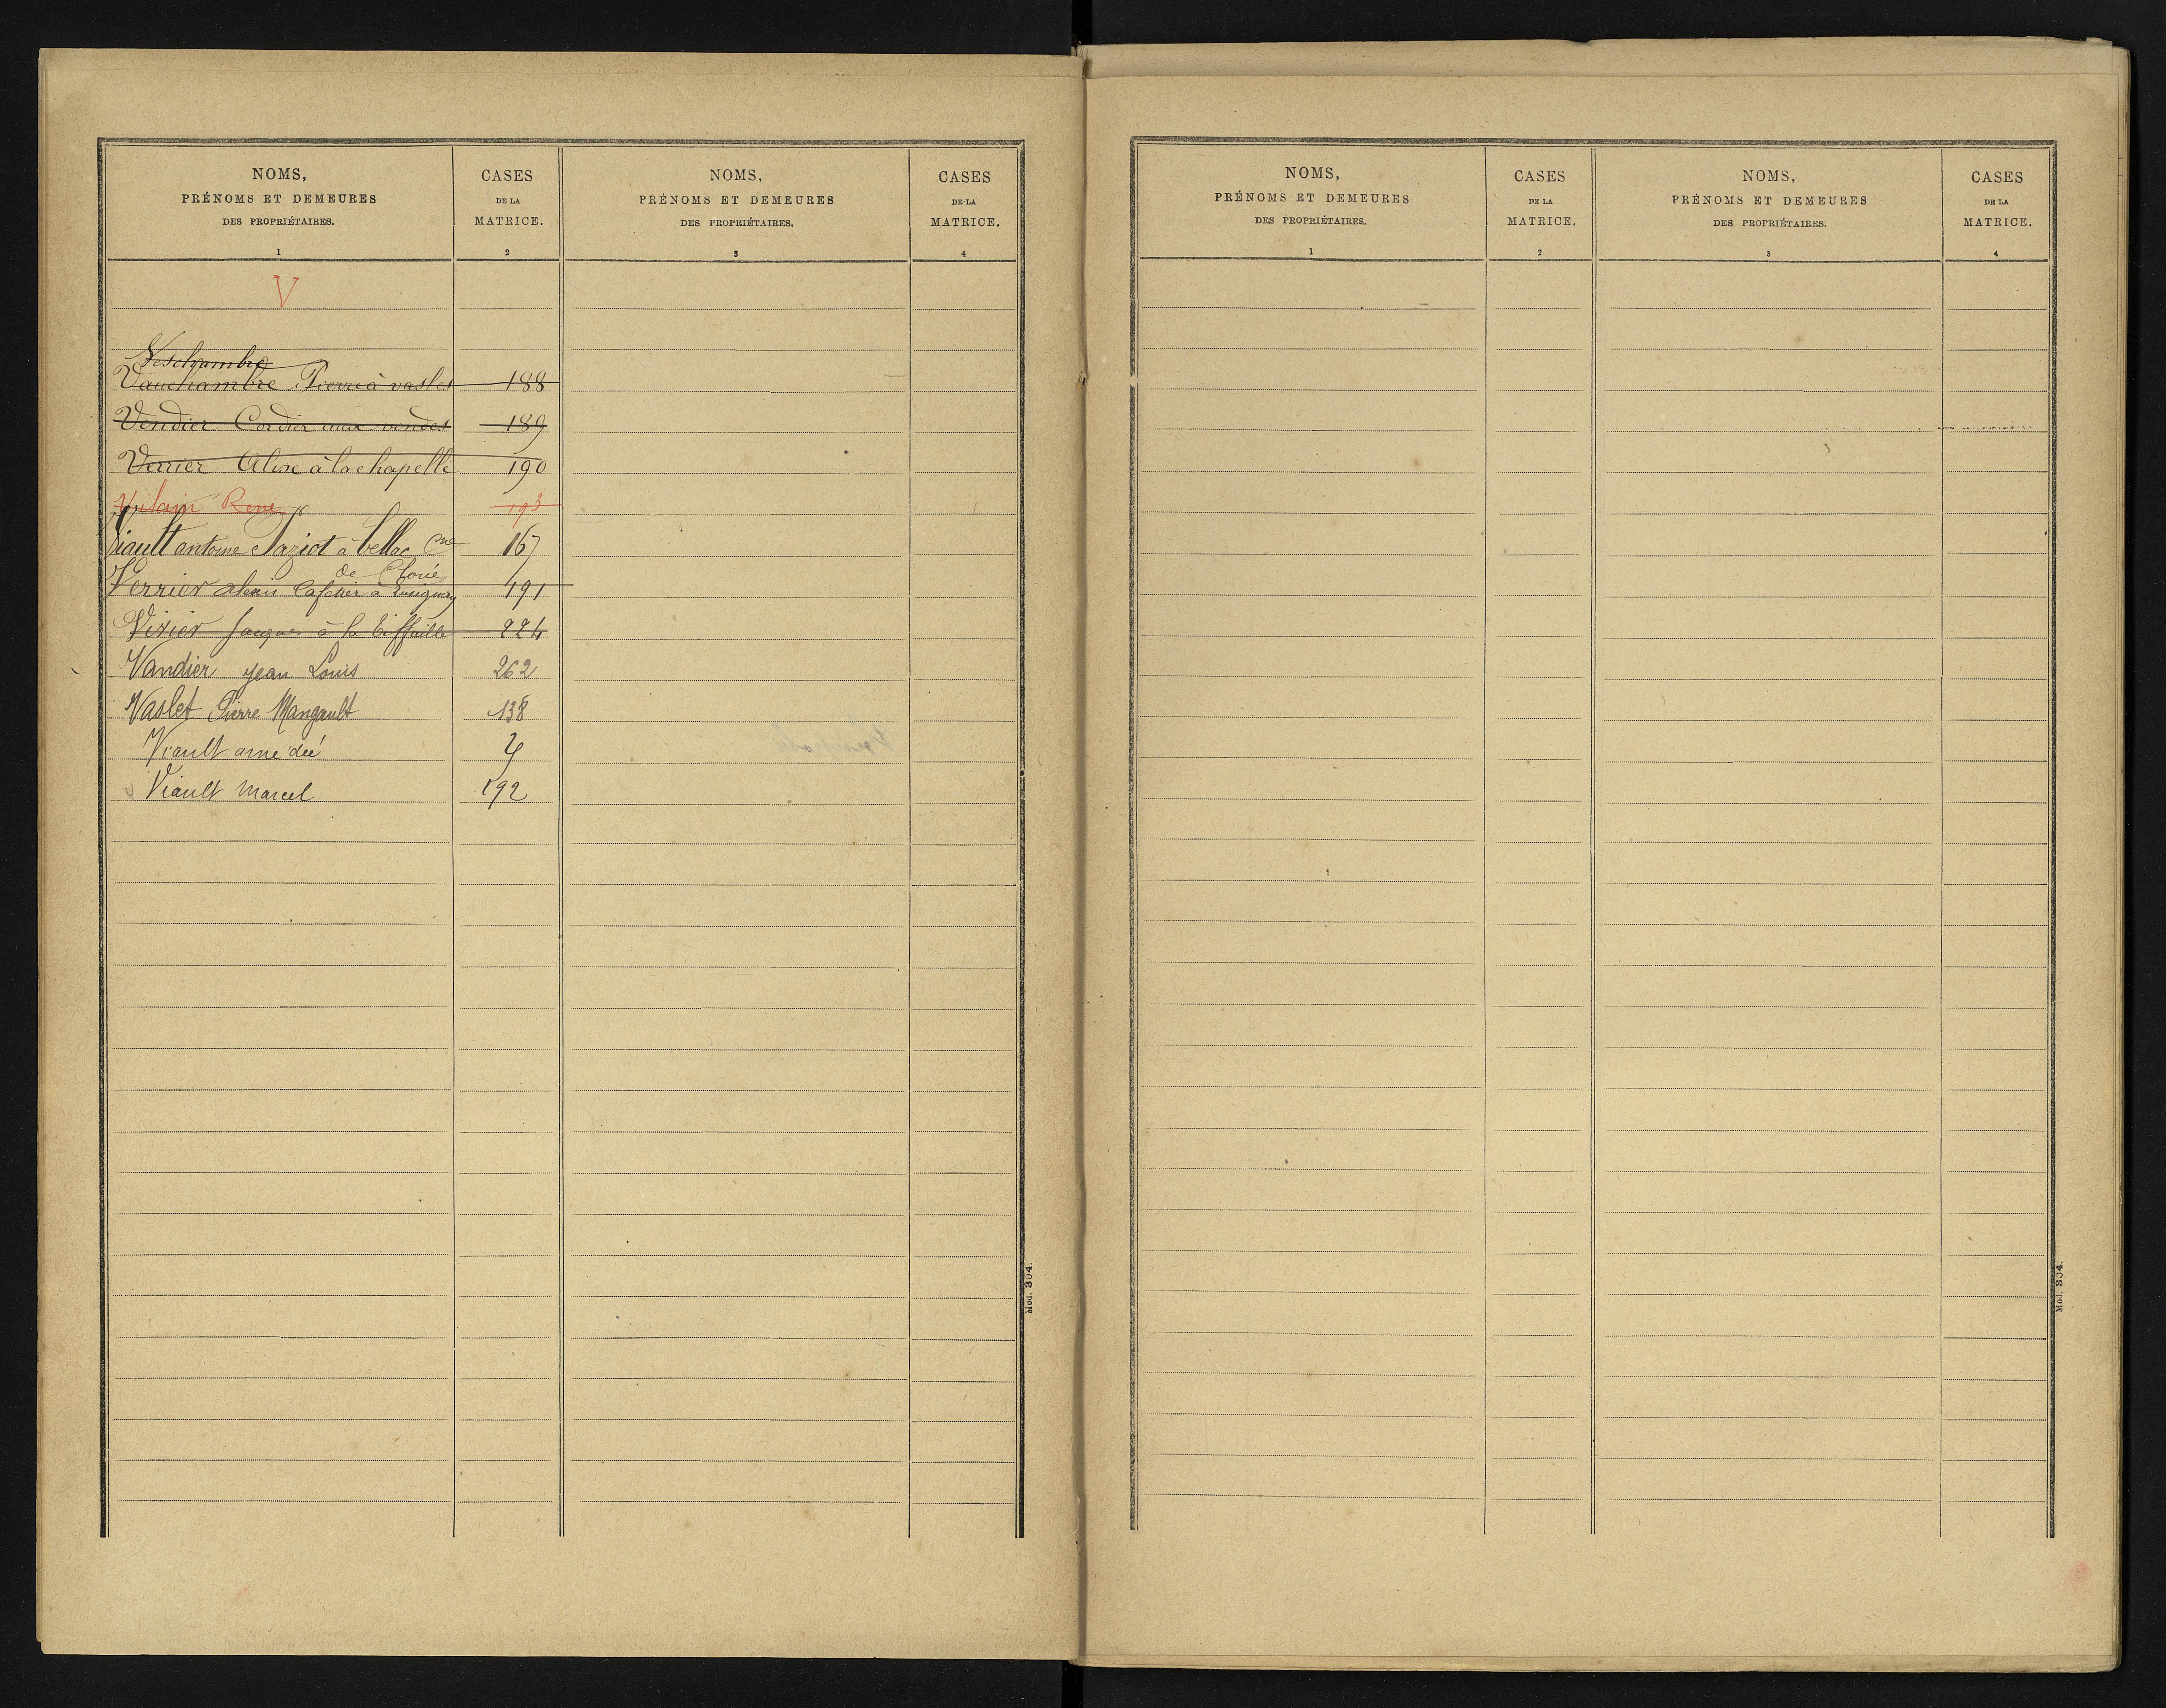 NOMS,
PRÉNOMS ET DEMEURES
DES PROPRIÉTAIRES.
1
CASES
DE LA
MATRICE.
2
NOMS,
PRÉNOMS ET DEMEURES
DES PROPRIÉTAIRES.
3
CASES
DE LA
MATRICE.
4
V
Deschambre
Vauchambre Pierre à vasles 188
Vendier Cordier aux vendes 189
Verrier Alexe à la chapelle 190
Vilain René 193
Viault antoine Saziot à bellac Cne 167
de Cloué
Verrier alexis Cafetier à Lusignan 191
Virier Jacques à la 224
Vandier Jean Louis 262
Vaslet Pierre Mangault 138
Viault amedée 4
Viault Marcel 192
Mod. 304.
NOMS,
PRÉNOMS ET DEMEURES
DES PROPRIÉTAIRES.
1
CASES
DE LA
MATRICE.
2
NOMS,
PRÉNOMS ET DEMEURES
DES PROPRIÉTAIRES.
3
CASES
DE LA
MATRICE.
4
Mod. 304.